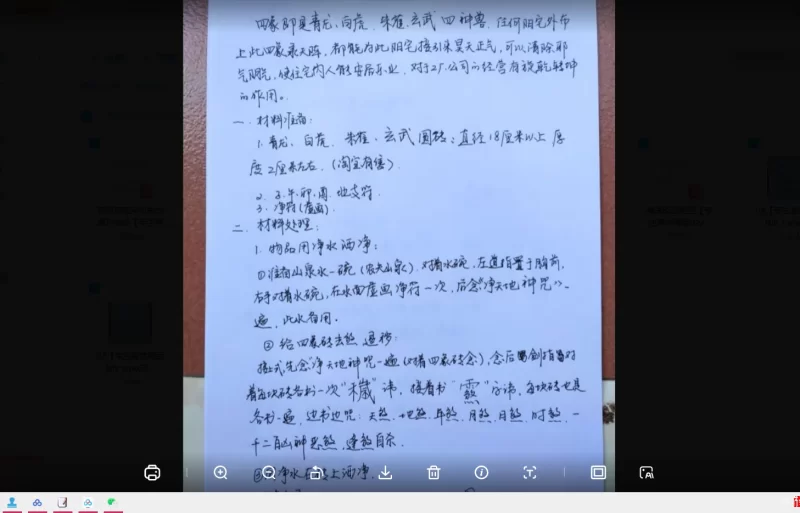 四象即是青龙、白虎、朱雀、玄武四神兽，任何阳宅外布
上此四象承天阵，都能为此阳宅接引来昊天正气，可以清除邪
气阴气，使住宅内人能安居乐业，对于工厂.公司的经营有旋乾转坤
的作用。
一、材料准备：
1. 青龙、白虎、朱雀、玄武圆砖：直径18厘米以上厚
度2厘米左右.（淘宝有售）.
2. 子.午.卯.酉.地支符.
3. 净符（虚画）.
二、材料处理：
1. 物品用净水洒净：
①准备山泉水一碗（农夫山泉）.对着水碗，左道指置于胸前，
右手对着水碗，在水面虚画净符一次，后念“净天地神咒”一
遍，此水备用。
②给四象砖去煞退秽：
接上式先念“净天地神咒一遍（对着四象砖念），念后剑指对
着每块砖各书一次“穢”讳，接着书“ ”字讳，每块砖也是
各书一遍，边书边咒：天煞.地煞.年煞.月煞.日煞.时煞.一
十二百凶神恶煞，逢煞自杀.
③净水在砖上洒净.